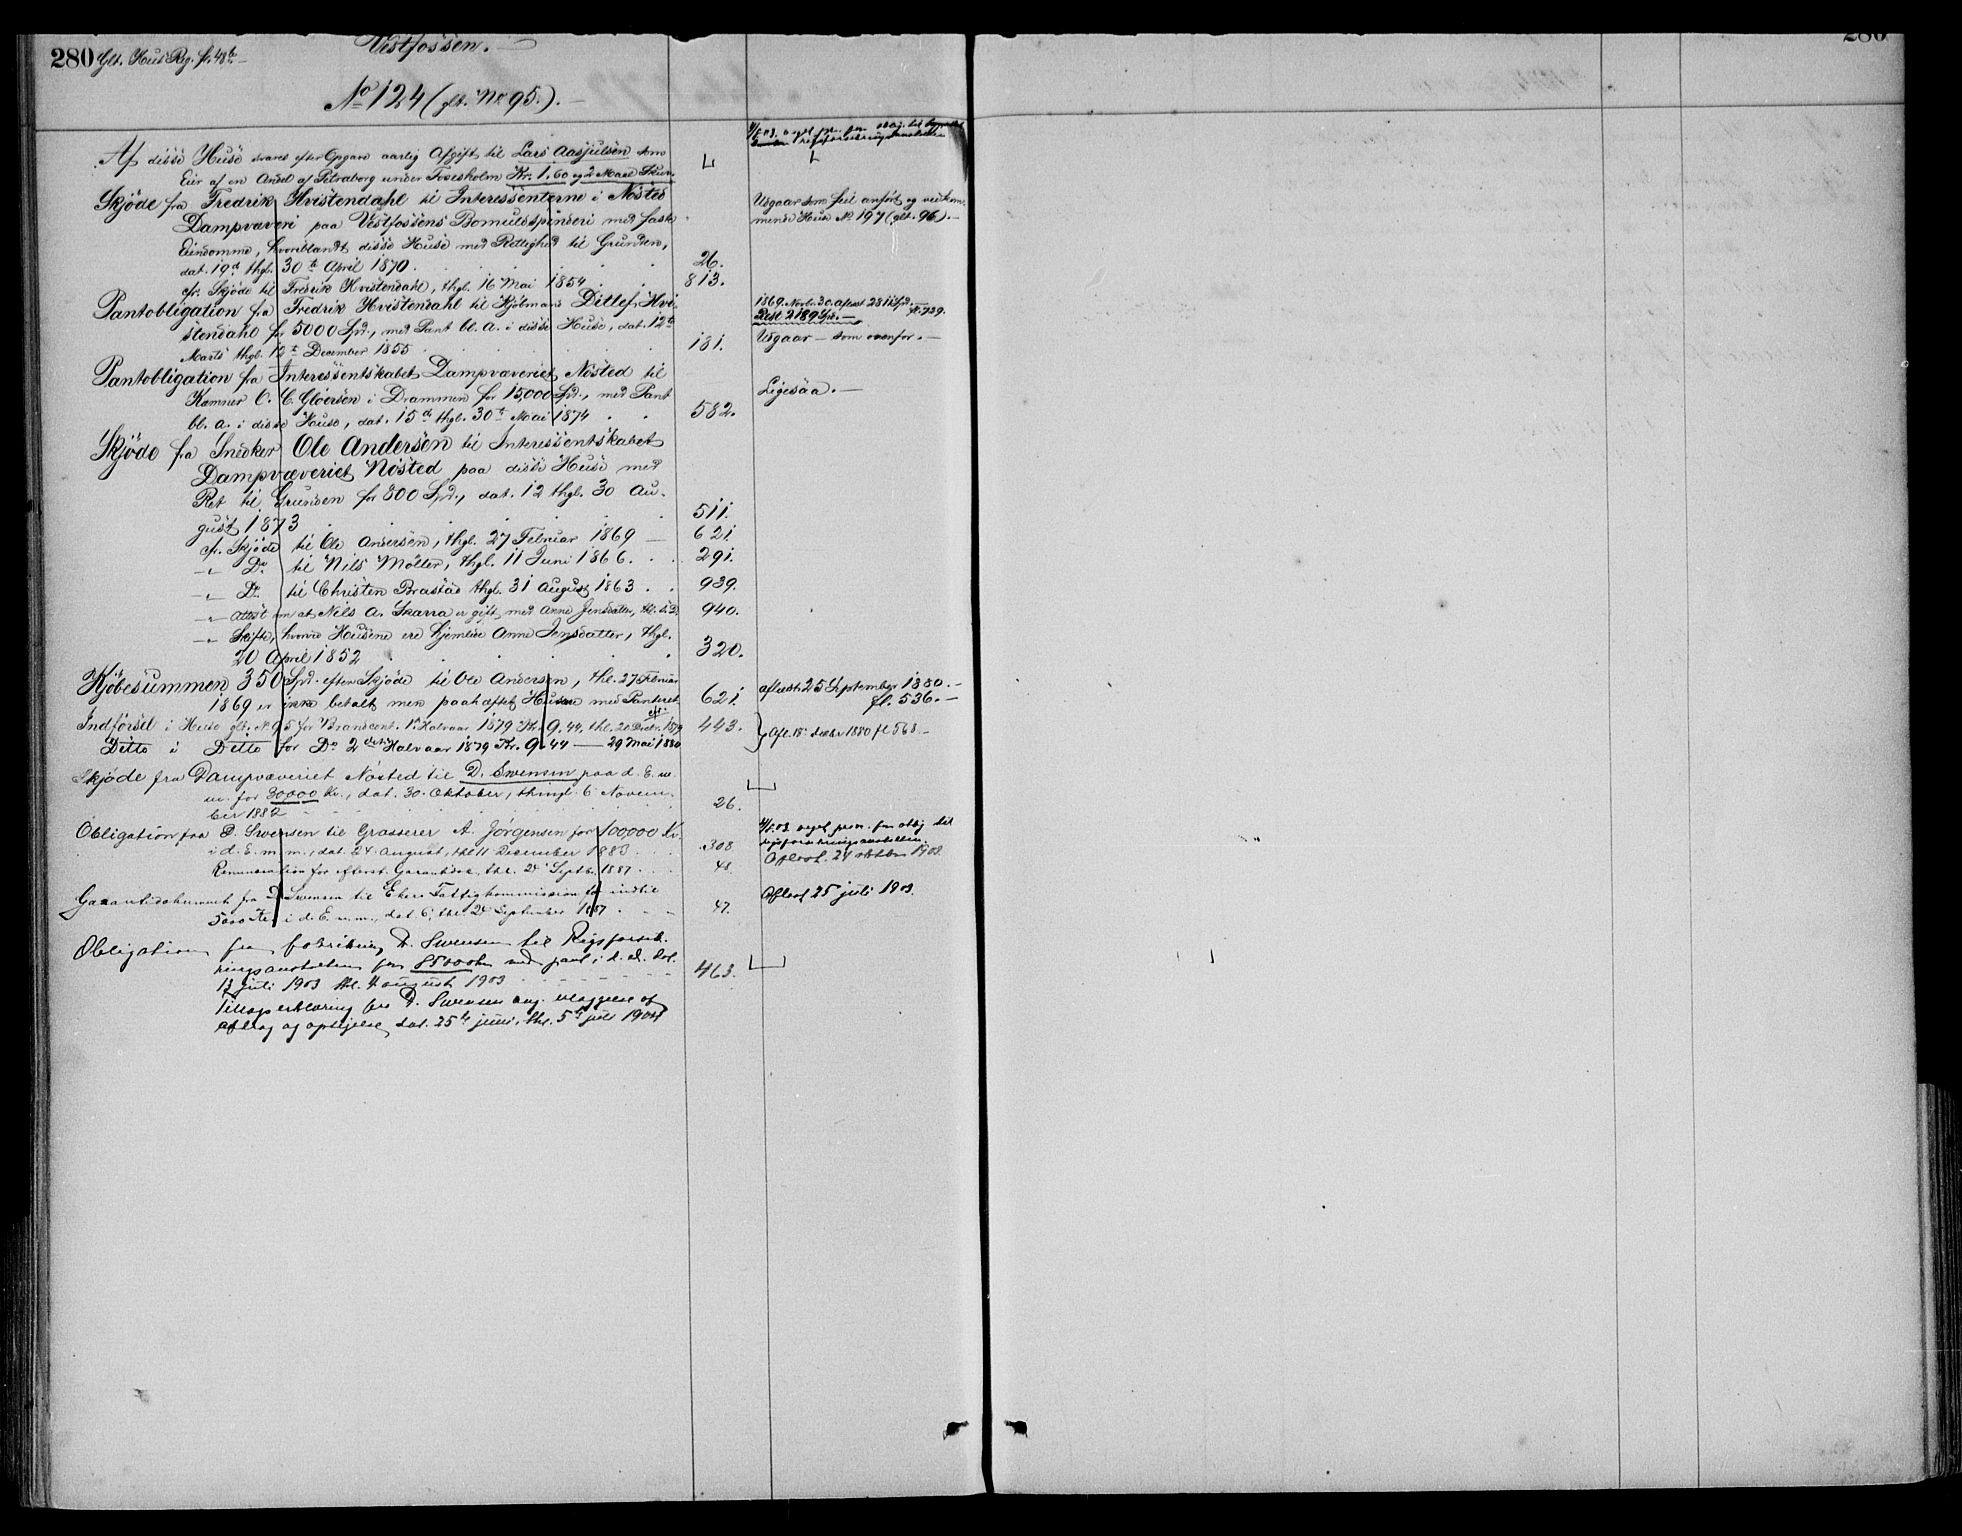 280 Glt. Huus Reg. fl. 48b. –
Vestfossen. –
280
No 124 (glt. Nr. 95.). –
4/8.03. veget prior. for oblig. til
rigsforsikringsanstalten
Af disse Huse svares efter Opgave aarlig Afgift til Lars Aasjulsen som
Eier af en Andel af Petraborg under Fossesholm Kr. 1,60 og 2 Maae Skur.
Skjøde fra Fredrik Hvistendahl til Interessenterne i Nøsted
Dampvæveri paa Vestfossens Bomuldsspinderi med faste
Eiendomme, hvoriblandt disse Huse med Rettighed til Grunden,
dat. 19d thgl. 30te April 1870 . . . . . 26.
Udgaar som feil anført og vedkom-
mende Hus No 197 (glt. 96). –
cfr. Skjøde til Fredrik Hvistendahl, thgl. 16 Mai 1854 . . 813.
Pantobligation fra Fredrik Hvistendahl til Kjøbmand Ditlef Hvi-
stendahl for 5000 Spd., med Pant bl. a. i disse Huse, dat. 12te
Marts thgl. 12te December 1855 . . . . . 181.
1869. Novbr. 30. aflæst 2811 Spd. –
Rest 2189 Spd. – fl. 729.
Udgaar – som ovenfor. –
Pantobligation fra Interessentskabet Dampvæveriet Nøsted til
Kæmner O. C. Gløersen i Drammen for 15,000 Spd., med Pant
bl. a. i disse Huse, dat. 15d thgl. 30te Mai 1874 . . 582.
Ligesaa. –
Skjøde fra Snedker Ole Andersen til Interessentskabet
Dampvæveriet Nøsted paa disse Huse med
Ret til Grunden for 800 Spd., dat. 12 thgl. 30 Au-
gust 1873 . . . . . . 511.
cfr. Skjøde til Ole Andersen, thgl. 27 Februar 1869 – 621.
–„– Do til Nils Møller, thgl. 11 Juni 1866. . . 291.
–„– Do til Christen Brastad thgl. 31 August 1863 . . 939.
–„– Attest om at Nils A. Skarra er gift med Anne Jensdatter, thl. s. D. 940.
–„– Skifte, hvorved Husene ere hjemlede Anne Jensdatter, thgl.
20 April 1852 . . . . . 320.
Kjøbesummen 350 Spd. efter Skjøde til Ole Andersen, thl. 27 Februar
1869 er ikke betalt men paaheftet Husene med Panteret 621.
aflæst 25 September 1880. –
fl. 536. –
Indførsel i Huse glt. No 95 for Brandcont. 1st Halvaar 1879 Kr. 9,44, thl. 20 Decbr. 1879 443.
Ditto i Ditto for Do 2det Halvaar 1879 Kr. 9.44 – 29 Mai 1880
Afl. 18 Decbr 1880 fl 568 –
Skjøde fra Dampvæveriet Nøsted til D. Swensen paa d. E. m.
m. for 30000 Kr., dat. 30. Oktober, thingl. 6 Novem-
ber 1882 . . . . . 26.
Obligation fra D. Swensen til Grosserer A. Jørgensen for 100,000 Kr.
i d. E. m. m., dat. 24. August, thl. 11 December 1883 . . 308
Renunciation for efterst. Garantidok., thl. 24 Septbr. 1887 . . . 48.
4/8.03 veget prior. for oblig til
rigsforsikringsanstalten
Aflæst 24 oktober 1908.
Garantidokument fra D. Swensen til Ekers Fattigkommission for indtil
5000 Kr. i d. E. m. m., dat 6, thl. 24 September 1887 . . . 47.
Aflæst 25 juli 1903.
Obligation fra fabrikeier D. Swensen til Rigsforsik-
ringsanstalten for 85000 kr med pant i d. ed. dat.
13 juli 1903 thl. 4 august 1903 – – – – 463.
Tillægserklæring fra D. Swensen ang. erlæggelse af
afdrag og opsigelse, dat. 25de juni, thl. 5te juli 1904